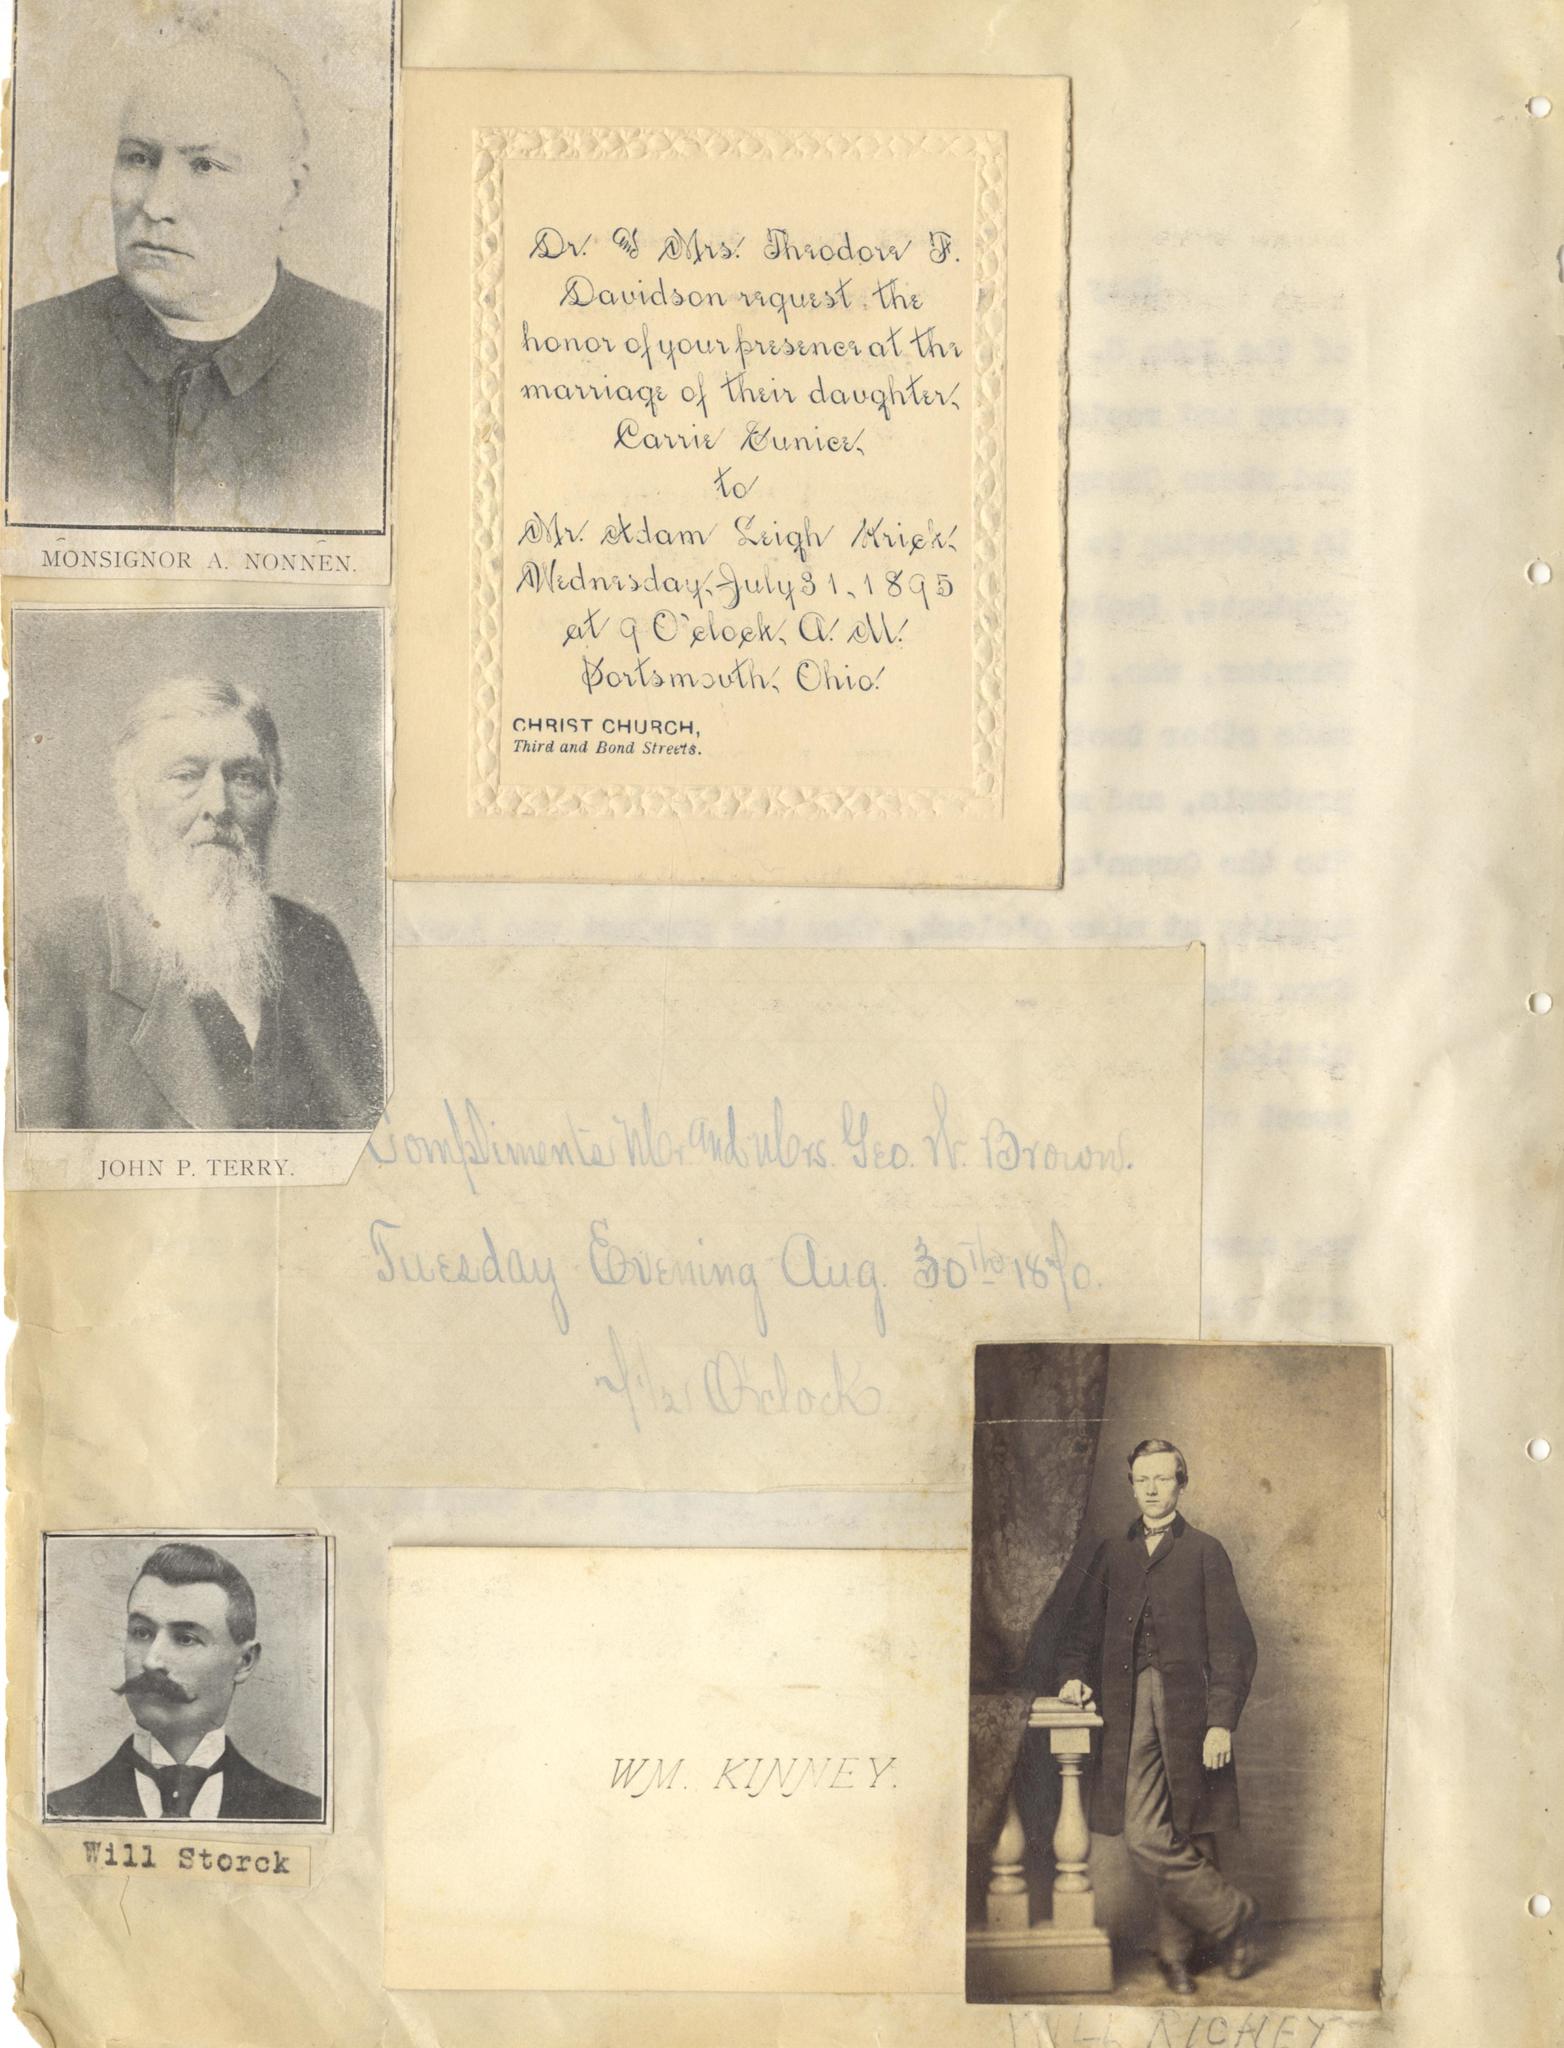 MONSIGNOR A. NONNEN.
Dr. and Mrs. Theodore F.
Davidson request the
honor of your presence at the
marriage of their daughter,
Carrie Eunice,
to
Mr. Adam Leigh Krick,
Wednesday, July 31, 1895
at 9 O'clock, A. M.
Portsmouth, Ohio.
CHRIST CHURCH,
Third and Bond Streets.
JOHN P. TERRY.
Compliments Mr. and Mrs. Geo. W. Brown.
Tuesday Evening Aug. 30th 1870.
7 1/2 O'clock
Will Storck
WM. KINNEY.
WILL RICHEY